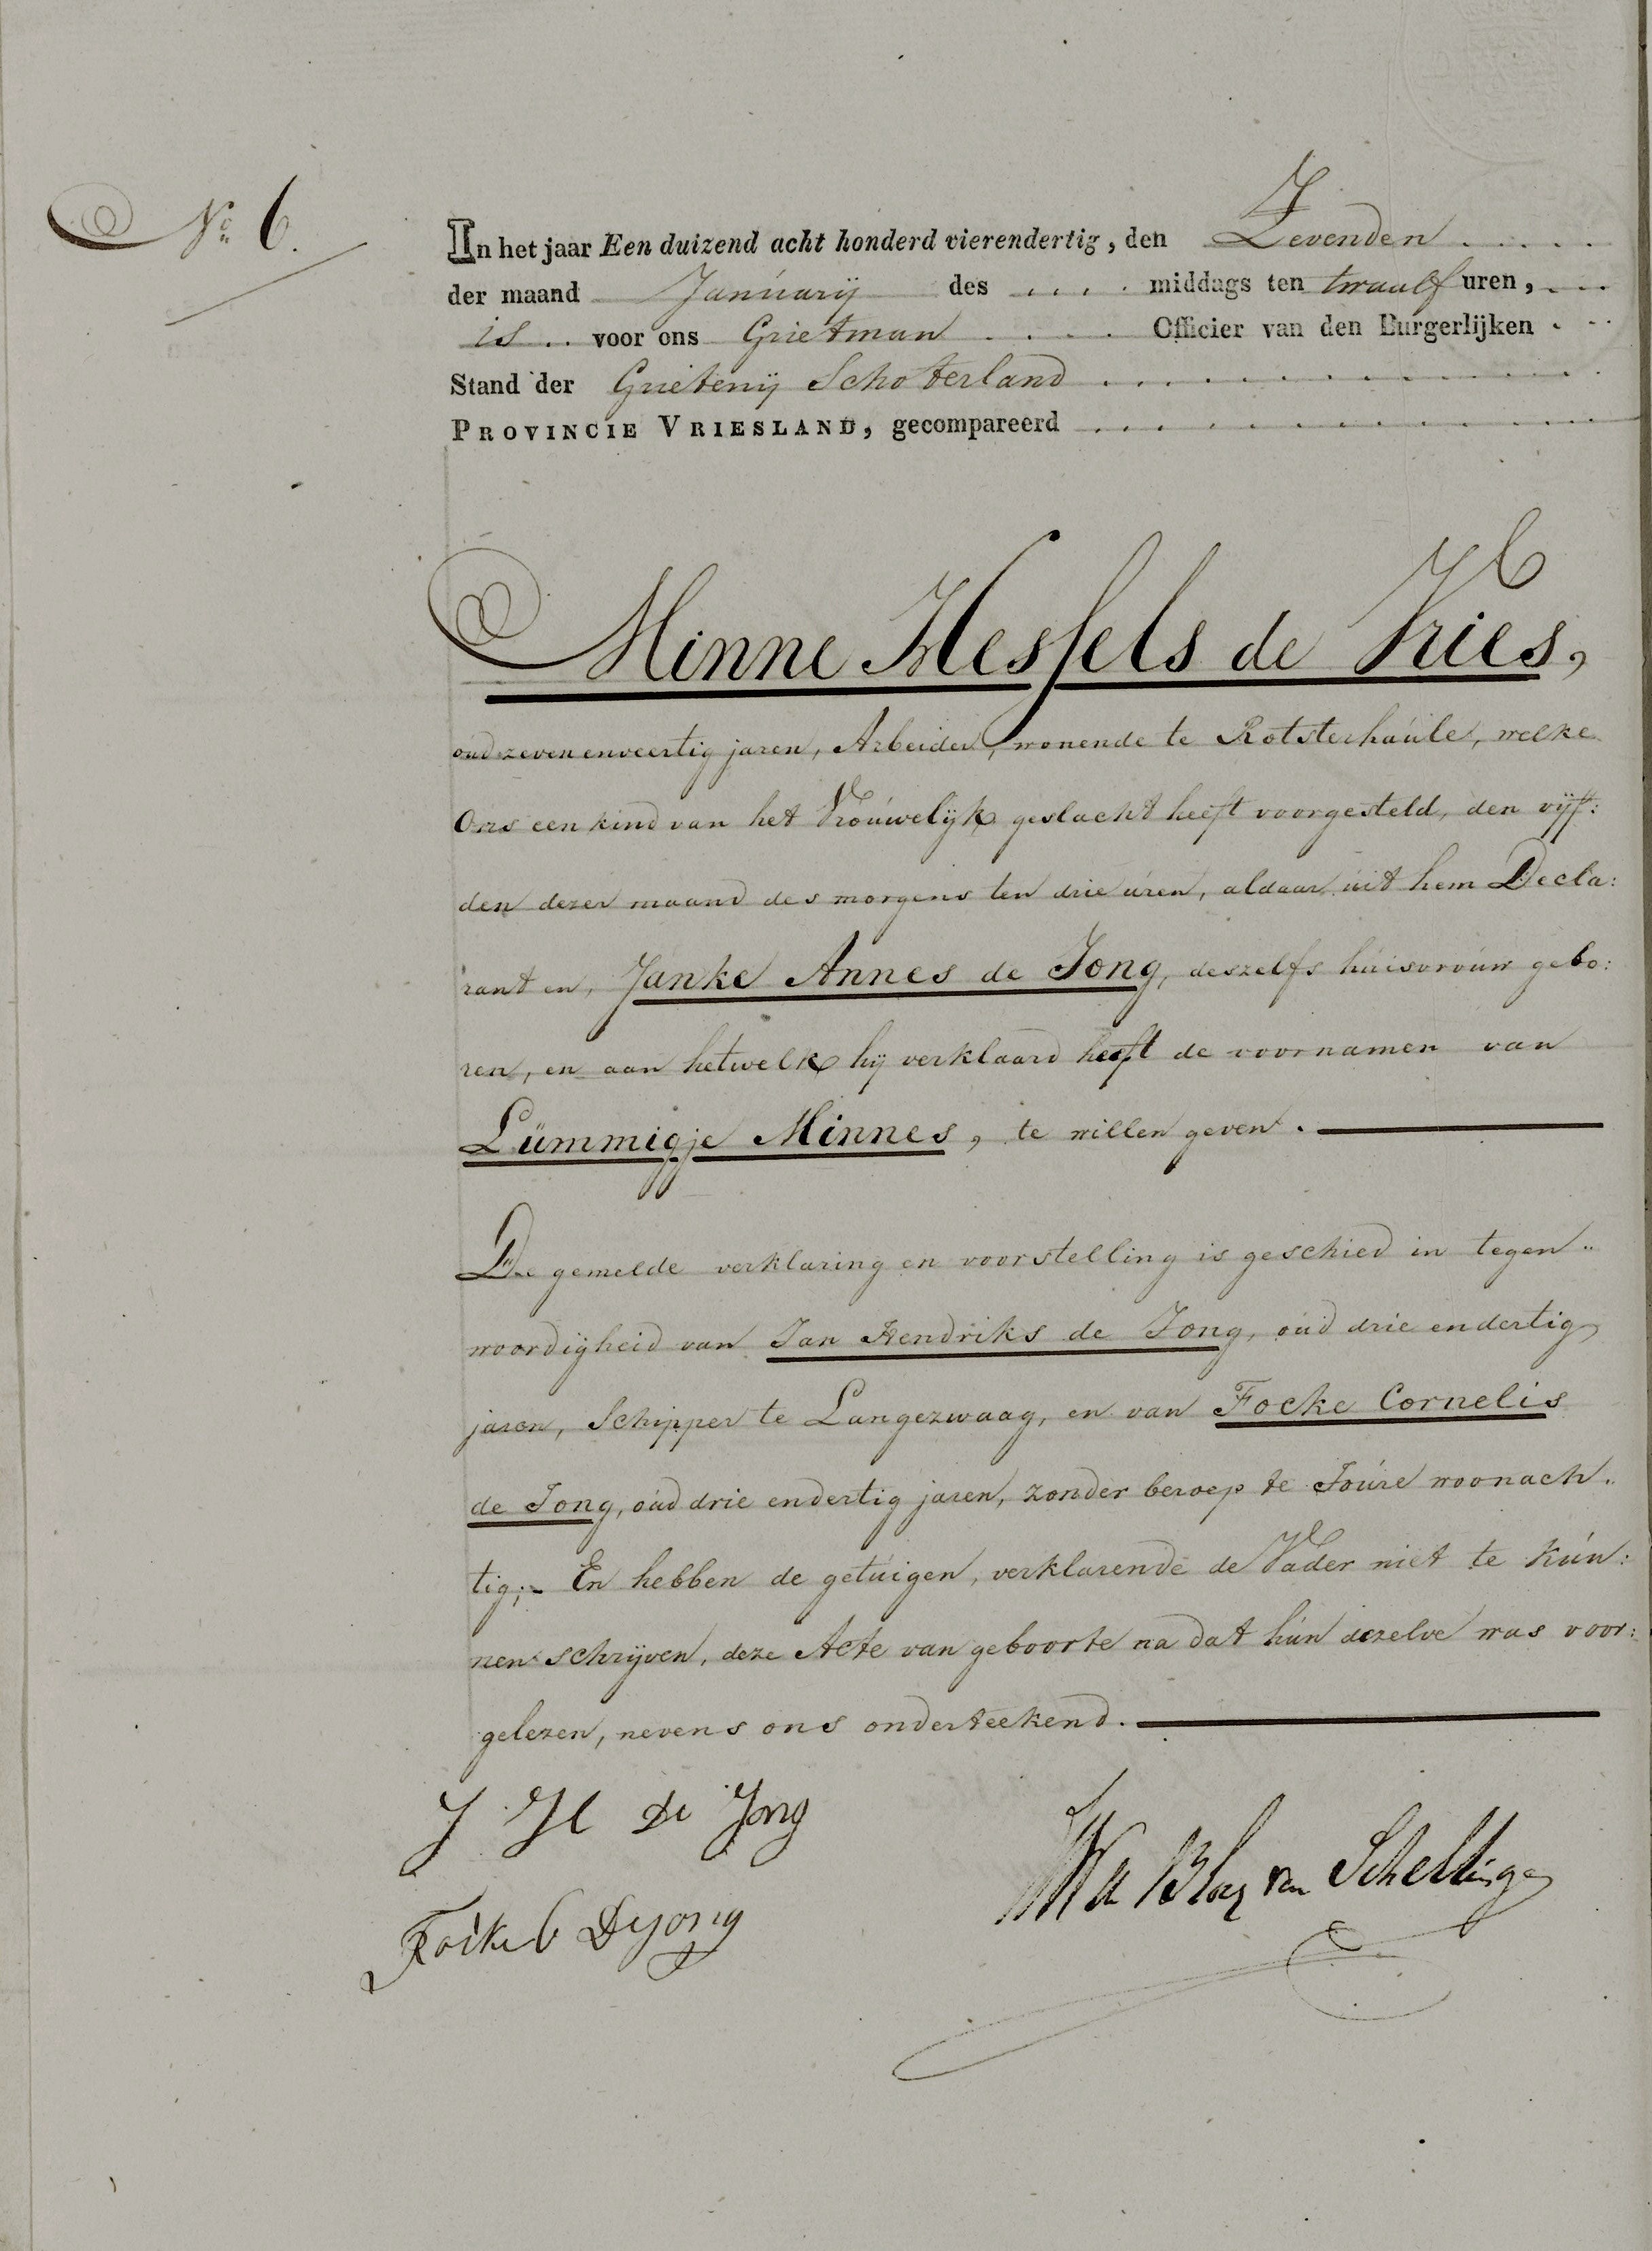 No 6.
In het jaar Een duizend acht honderd vierendertig, den Zevenden .....
der maand Januarij des .... middags ten twaalf uren, ...
is .. voor ons Grietman .... Officier van den Burgerlijken ...
Stand der Grietenij Schoterland ..........
PROVINCIE VRIESLAND, gecompareerd ..........
Minne Hessels de Vries,
oud zeven en veertig jaren, Arbeider, wonende te Rotsterhaule, welke
Ons een kind van het Vrouwelijk geslacht heeft voorgesteld, den vijf:
den dezer maand des morgens ten drie uren, aldaar uit hem Decla:
rant en, Janke Annes de Jong, deszelfs huisvrouw gebo:
ren, en aan hetwelk hij verklaard heeft de voornamen van
Lummigje Minnes, te willen geven.
De gemelde verklaring en voorstelling is geschied in tegen..
woordigheid van Jan Hendriks de Jong, oud drie en dertig
jaren, Schipper te Langezwaag, en van Focke Cornelis
de Jong, oud drie en dertig jaren, zonder beroep te Joure woonach..
tig;- En hebben de getuigen, verklarende de Vader niet te kun:
nen schrijven, deze Acte van geboorte na dat hun dezelve was voor:
gelezen, nevens ons onderteekend.
J H De Jong
Focke C Dejong
van Schelltinga